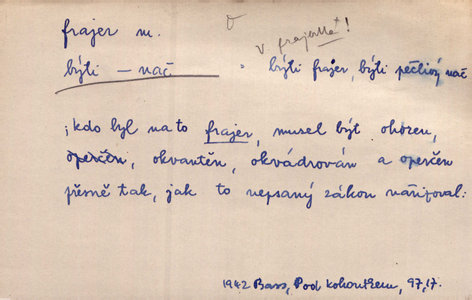 frajer m.
v frajerka!
býti – nač = býti frajer, býti pečlivý nač
; kdo byl na to frajer, musel být ohozen,
operčen, okvantěn, okvádrován a operčen
přesně tak, jak to nepsaný zákon nařizoval:
1942 Bass, Pod kohoutkem, 97,17.